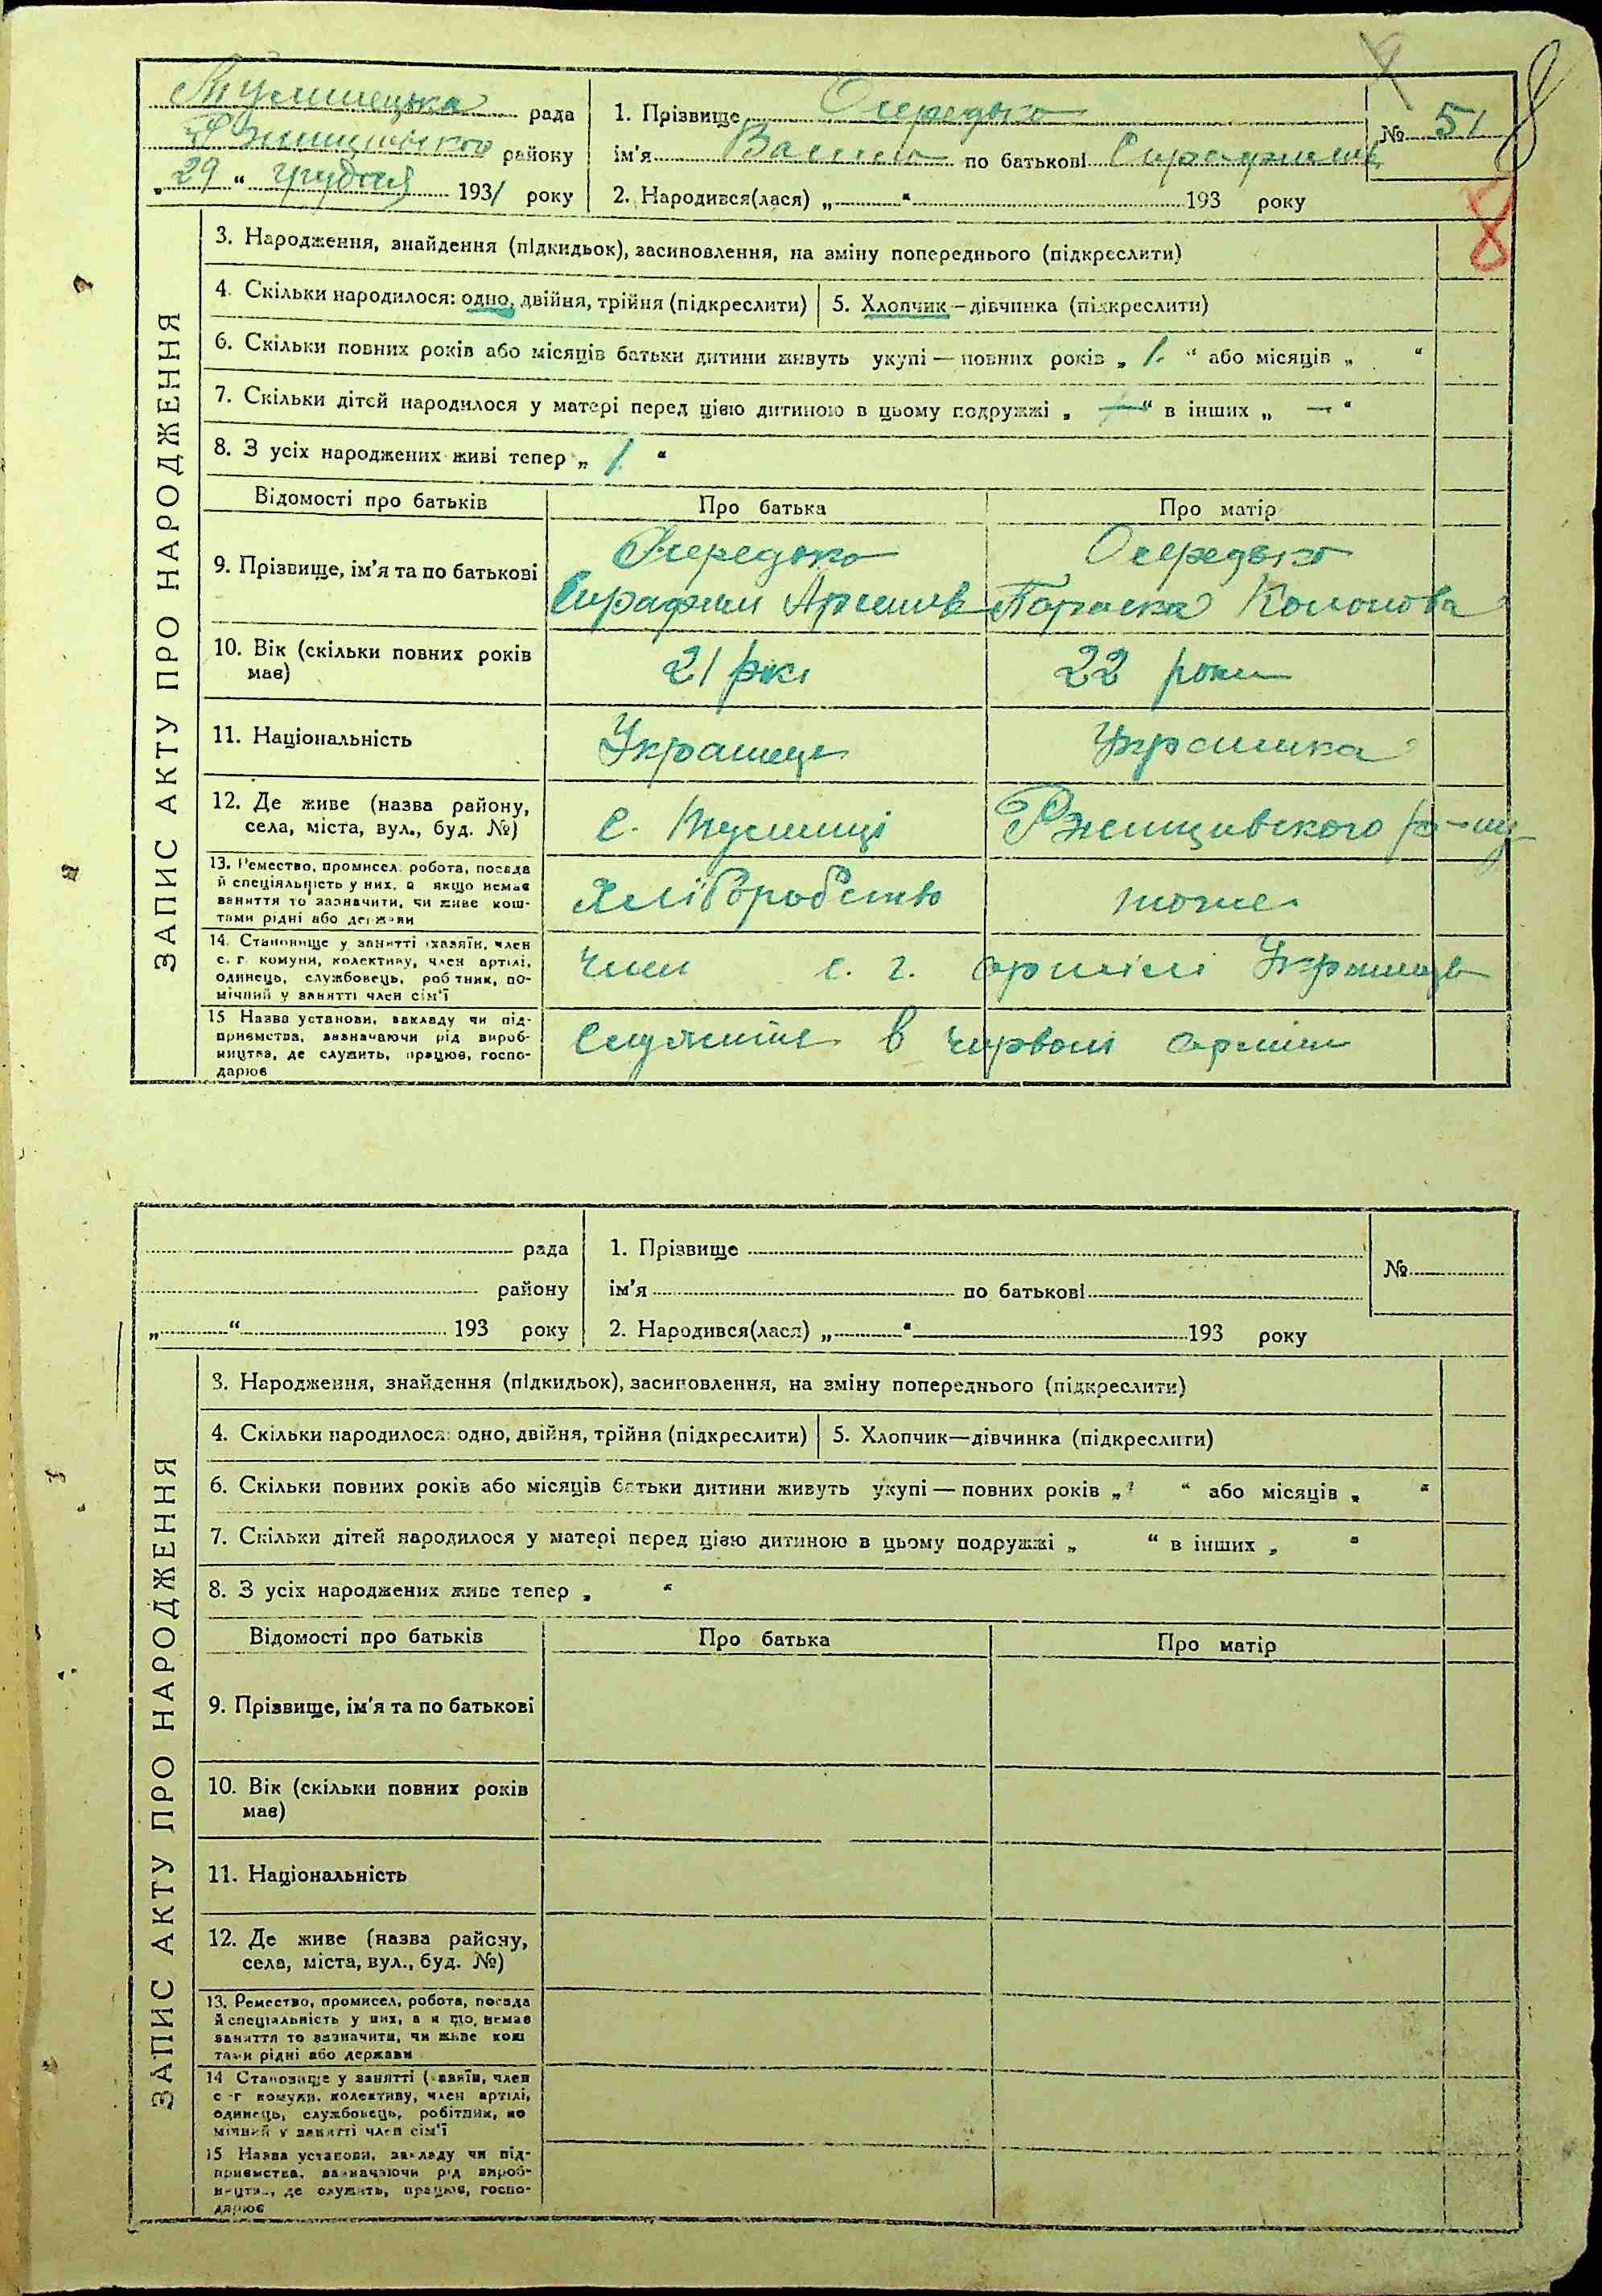 рада
району
„ 29 “ грудня 1931 року
1. Прізвище Очередько
ім'я по батькові
2. Народився(лася) „ “ 193 року
№ 51
8
8
ЗАПИС АКТУ ПРО НАРОДЖЕННЯ
3. Народження, знайдення (підкидьок), засиновлення, на зміну попереднього (підкреслити)
4. Скільки народилося: одно, двійня, трійня (підкреслити)
5. Хлопчик—дівчинка (підкреслити)
6. Скільки повних років або місяців батьки дитини живуть укупі — повних років „ 1. “ або місяців „ “
7. Скільки дітей народилося у матері перед цією дитиною в цьому подружжі „ — “ в інших „ — “
8. З усіх народжених живі тепер „ 1. “
Відомості про батьків
Про батька
Про матір
9. Прізвище, ім'я та по батькові
Очередько
Очередько
Параска
10. Вік (скільки повних років
має)
21 рік
22 роки
11. Національність
Українець
Українка
12. Де живе (назва району,
села, міста, вул., буд. №)
с.
Ржищивского р-ну
13. Ремество, промисел, робота, посада
й спеціяльність у них, а якщо немає
заняття то зазначити, чи живе кош-
тами рідні або держави
Хліборобство
тоже
14. Становище у занятті (хазяїн, член
с. г. комуни, колективу, член артілі,
одинець, службовець, робітник, по-
мічний у занятті член сім'ї
член с. г. артілі
15 Назва установи, закладу чи під-
приємства, зазначаючи рід вироб-
ництва, де служить, працює, госпо-
дарює
в червоні армії
рада
району
„ “ 193 року
1. Прізвище
ім'я по батькові
2. Народився(лася) „ “ 193 року
№
ЗАПИС АКТУ ПРО НАРОДЖЕННЯ
3. Народження, знайдення (підкидьок), засиновлення, на зміну попереднього (підкреслити)
4. Скільки народилося: одно, двійня, трійня (підкреслити)
5. Хлопчик—дівчинка (підкреслити)
6. Скільки повних років або місяців батьки дитини живуть укупі — повних років „ “ або місяців „ “
7. Скільки дітей народилося у матері перед цією дитиною в цьому подружжі „ “ в інших „ “
8. З усіх народжених живе тепер „ “
Відомості про батьків
Про батька
Про матір
9. Прізвище, ім'я та по батькові
10. Вік (скільки повних років
має)
11. Національність
12. Де живе (назва району,
села, міста, вул., буд. №)
13. Ремество, промисел, робота, посада
й спеціяльність у них, а якщо, немає
заняття то зазначити, чи живе кош
тами рідні або держави
14 Становище у занятті (хазяїн, член
с-г комуни, колективу, член артілі,
одинець, службовець, робітник, по
мічний у занятті член сім'ї
15 Назва установи, закладу чи під-
приємства, зазначаючи рід вироб-
ництва, де служить, працює, госпо-
дарює